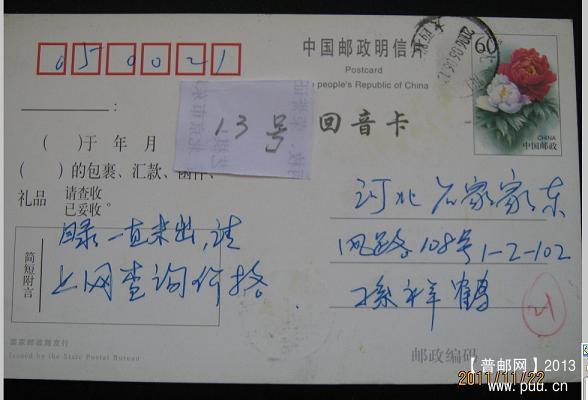 050021
中国邮政明信片
Postcard
people's Republic of China
60
CHINA
中国邮政
13号
回音卡
：
（ ）于 年 月
（ ）的包裹、汇款、函件、
礼品 请查收
已妥收。
简短附言
目录一直未出，请
上网查询价格
河北石家家东
风路108号1-2-102
孙祥鹤
21
国家邮政局发行
Issued by the State Postal Bureau
邮政编码
【普邮网】2013
2011/11/22
www.pud.cn